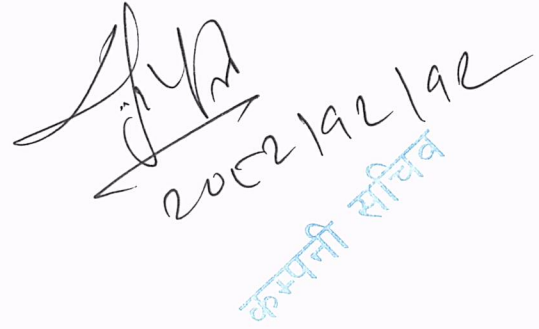 २०८२/१२/१२
कम्पनी सचिव